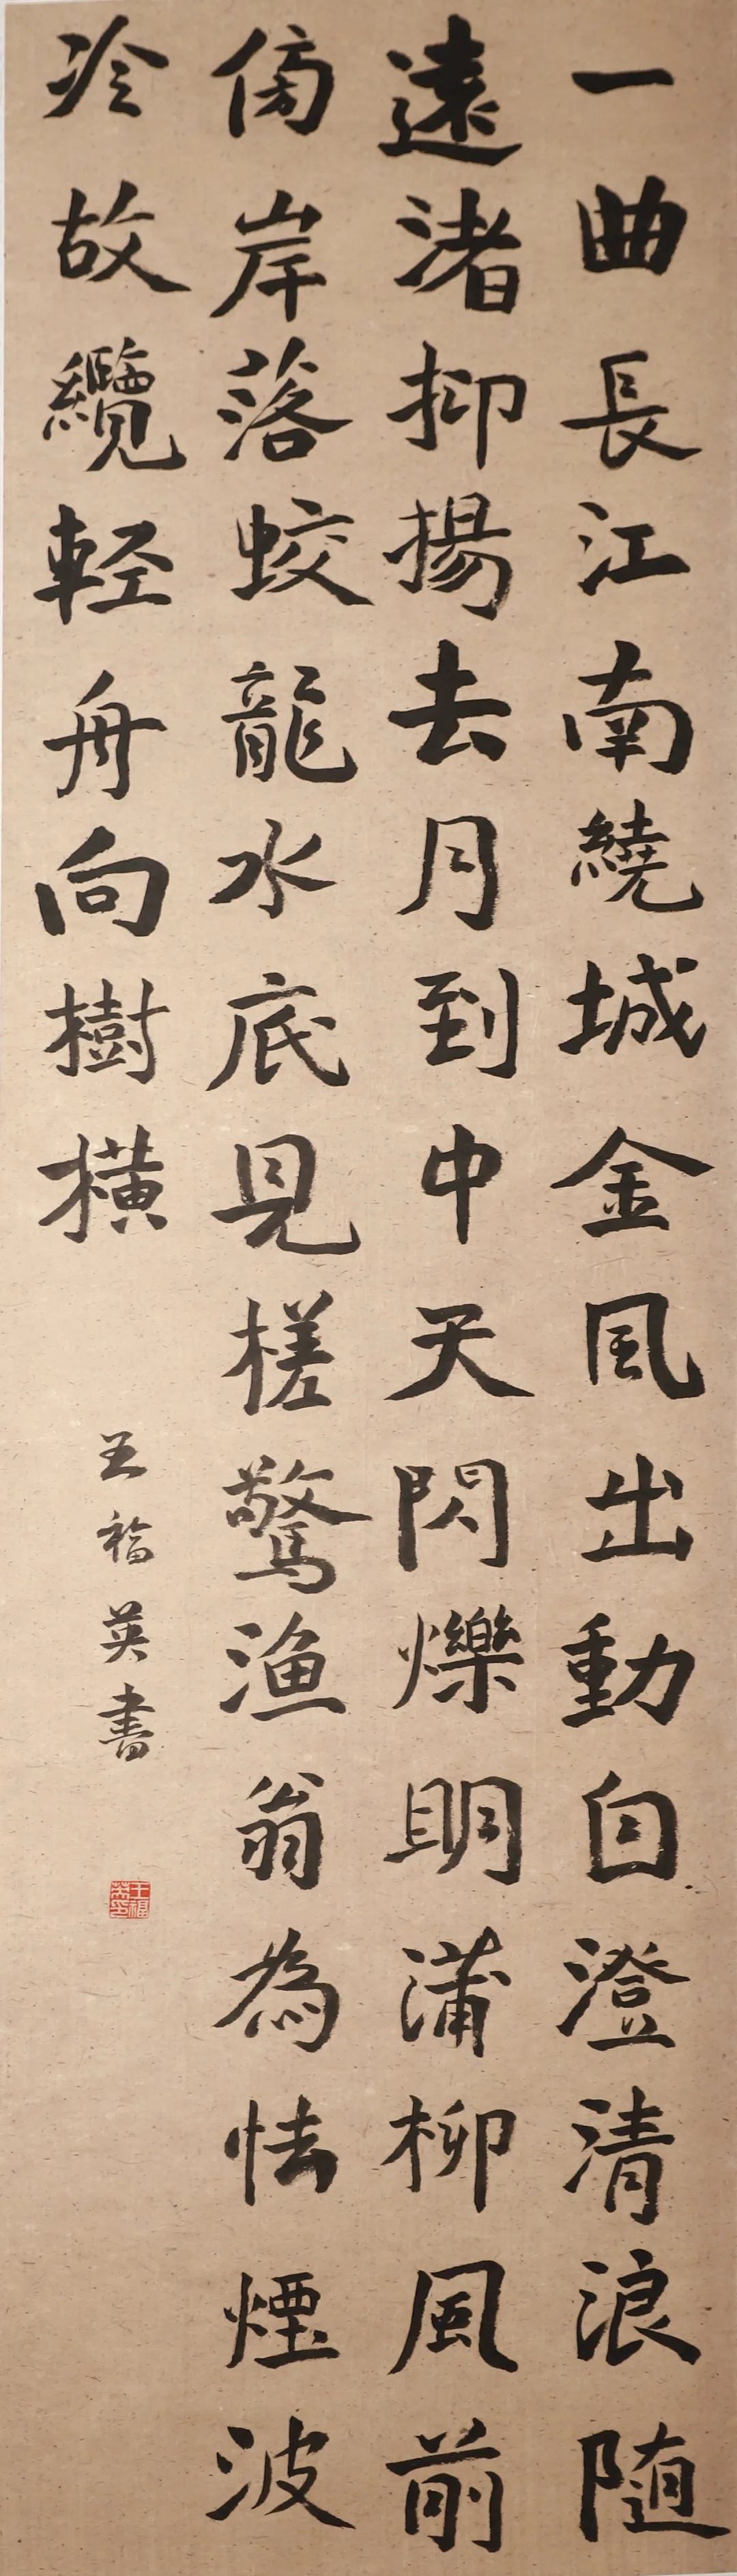 一曲長江南繞城金風出動自澄清浪隨
遠渚抑揚去月到中天閃爍明蒲柳風前
傍岸落蛟龍水底見槎驚漁翁為怯煙波
冷故纜軽舟向樹橫
王福英書
王福英印